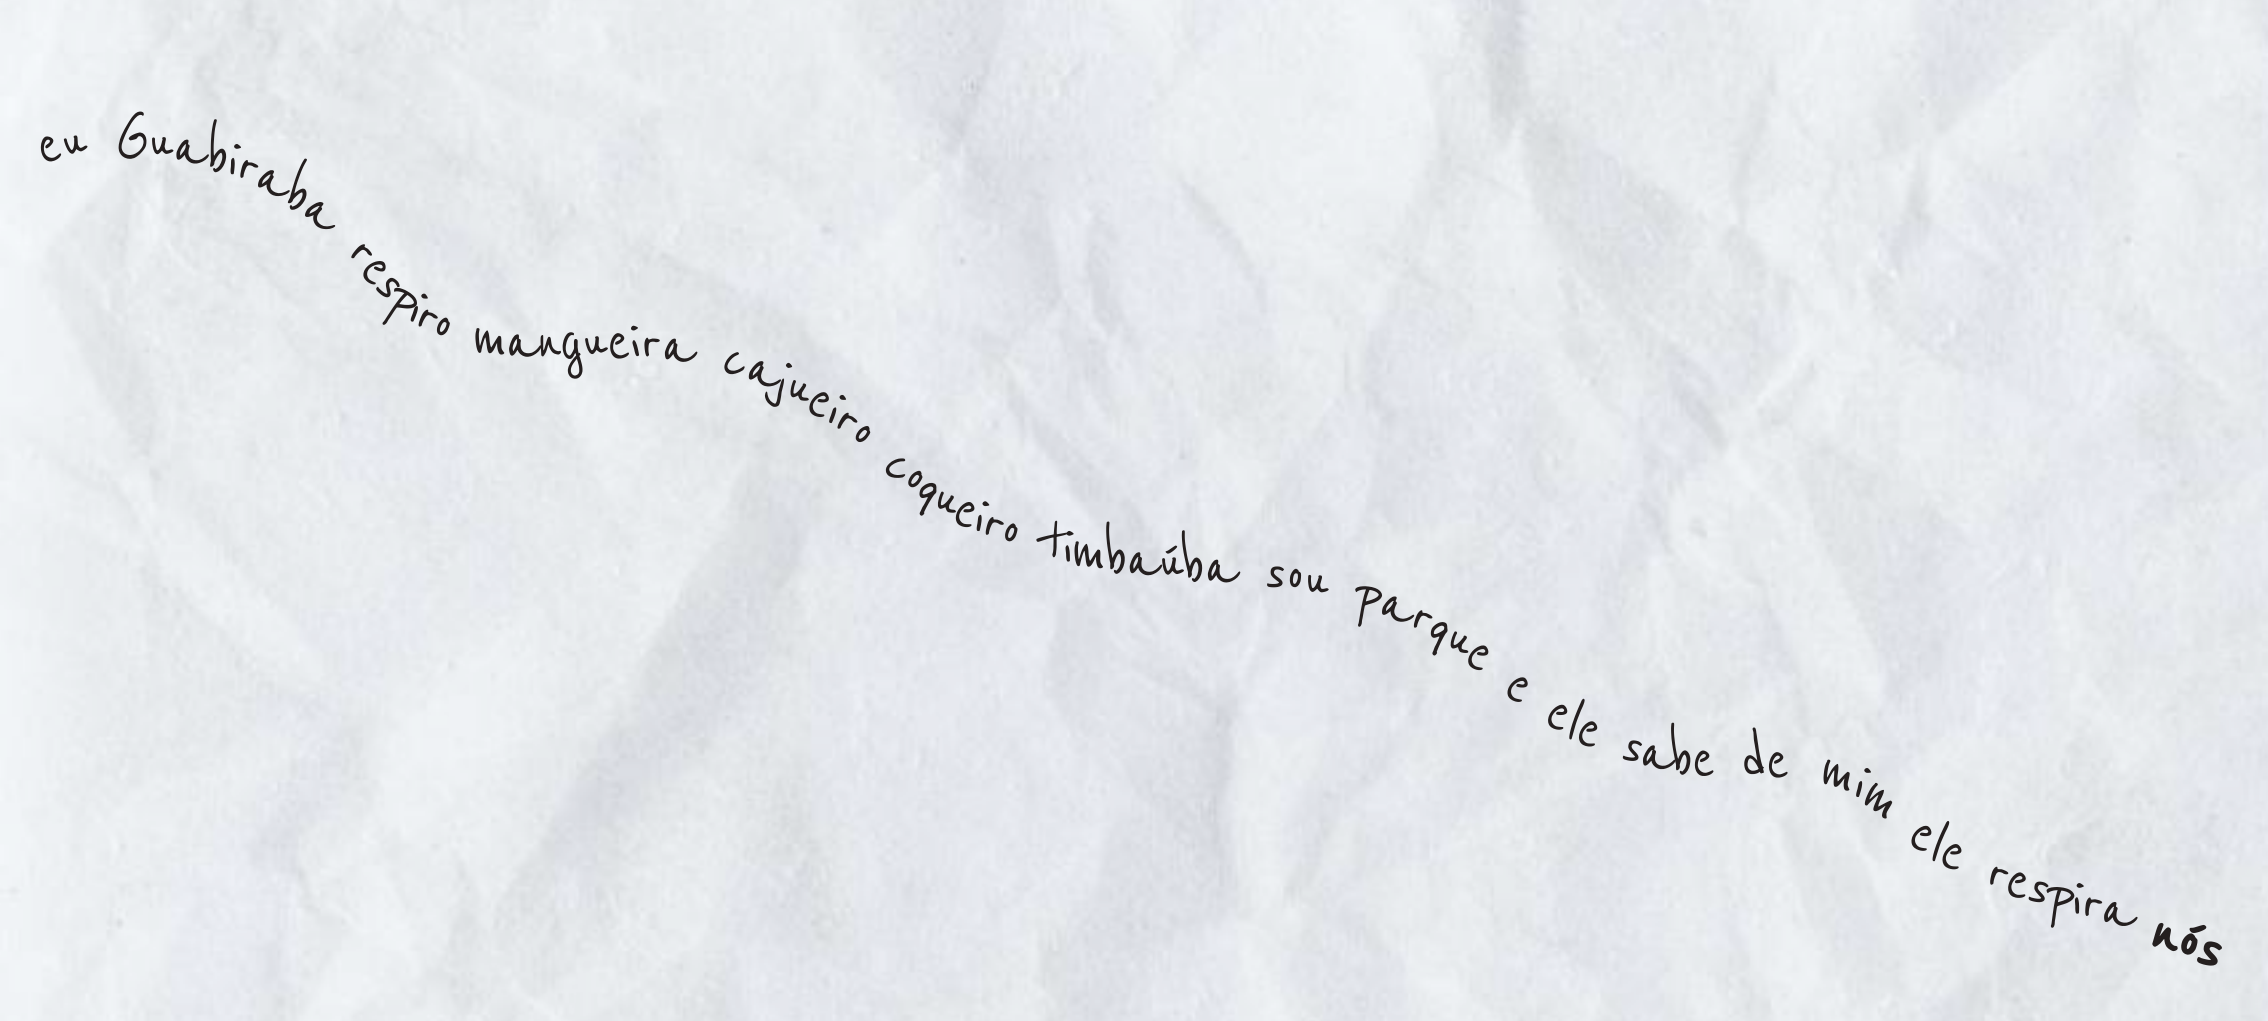 eu Guabiraba respiro mangueira cajueiro coqueiro timbaúba sou parque e ele sabe de mim ele respira nós